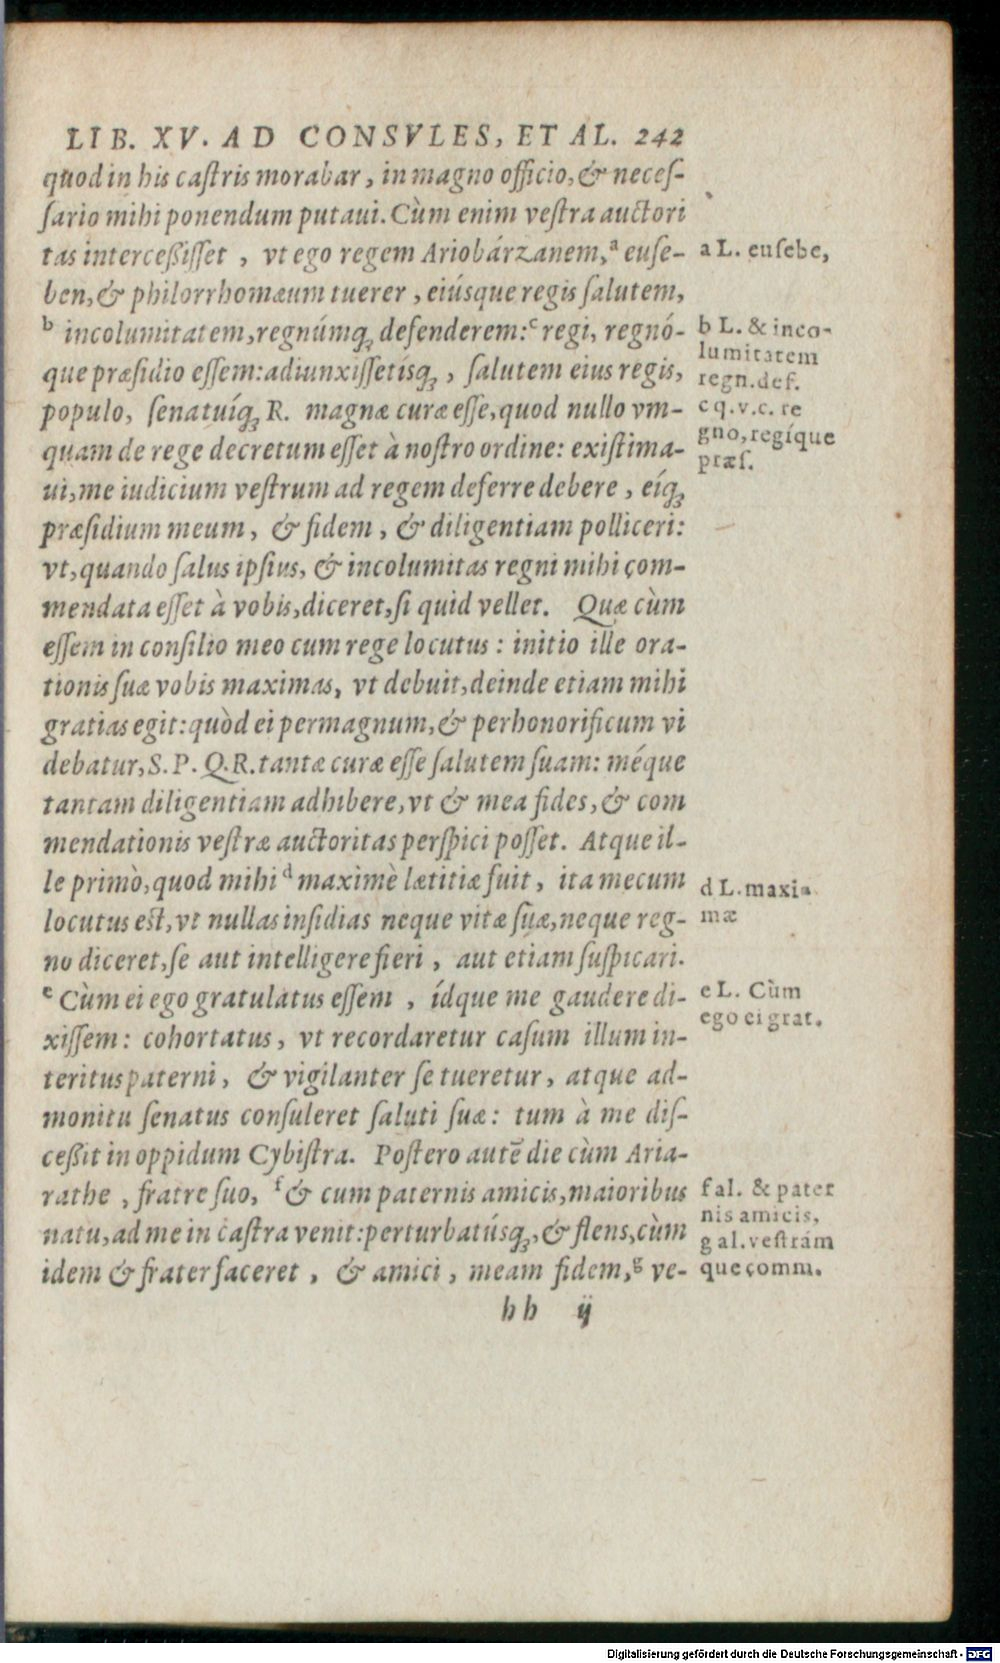 LIB. XV. AD CONSVLES, ET AL. 242
quod in his caſtris morabar, in magno officio, & neceſ-
ſario mihi ponendum putaui. Cùm enim veſtra auctori
tas interceßiſſet, vt ego regem Ariobárzanem, ᵃ euſe-
ben, & philorrhomæum tuerer, eiúsque regis ſalutem,
ᵇ incolumitatem, regnúmq; defenderem: ᶜ regi, regnó-
que præſidio eſſem: adiunxiſſetísq;, ſalutem eius regis,
populo, ſenatuíq; R. magnæ curæ eſſe, quod nullo vm-
quam de rege decretum eſſet à noſtro ordine: exiſtima-
ui, me iudicium veſtrum ad regem deferre debere, eíq;
præſidium meum, & fidem, & diligentiam polliceri:
vt, quando ſalus ipſius, & incolumitas regni mihi com-
mendata eſſet à vobis, diceret, ſi quid vellet. Quæ cùm
eſſem in conſilio meo cum rege locutus: initio ille ora-
tionis ſuæ vobis maximas, vt debuit, deinde etiam mihi
gratias egit: quòd ei permagnum, & perhonorificum vi
debatur, S. P. Q. R. tantæ curæ eſſe ſalutem ſuam: méque
tantam diligentiam adhibere, vt & mea fides, & com
mendationis veſtræ auctoritas perſpici poſſet. Atque il-
le primò, quod mihi ᵈ maximè lætitiæ fuit, ita mecum
locutus eſt, vt nullas inſidias neque vitæ ſuæ, neque reg-
no diceret, ſe aut intelligere fieri, aut etiam ſuſpicari.
ᵉ Cùm ei ego gratulatus eſſem, ídque me gaudere di-
xiſſem: cohortatus, vt recordaretur caſum illum in-
teritus paterni, & vigilanter ſe tueretur, atque ad-
monitu ſenatus conſuleret ſaluti ſuæ: tum à me diſ-
ceßit in oppidum Cybiſtra. Poſtero autẽ die cùm Aria-
rathe, fratre ſuo, ᶠ & cum paternis amicis, maioribus
natu, ad me in caſtra venit: perturbatúsq;, & flens, cùm
idem & frater faceret, & amici, meam fidem, ᵍ ve-
hh ij
a L. euſebe,
b L. & inco-
lumitatem
regn. def.
c q. v. c. re
gno, regíque
præſ.
d L. maxi-
mæ
e L. Cùm
ego ei grat.
f al. & pater
nis amicis,
g al. veſtrám
que comm.
Digitalisierung gefördert durch die Deutsche Forschungsgemeinschaft - DFG